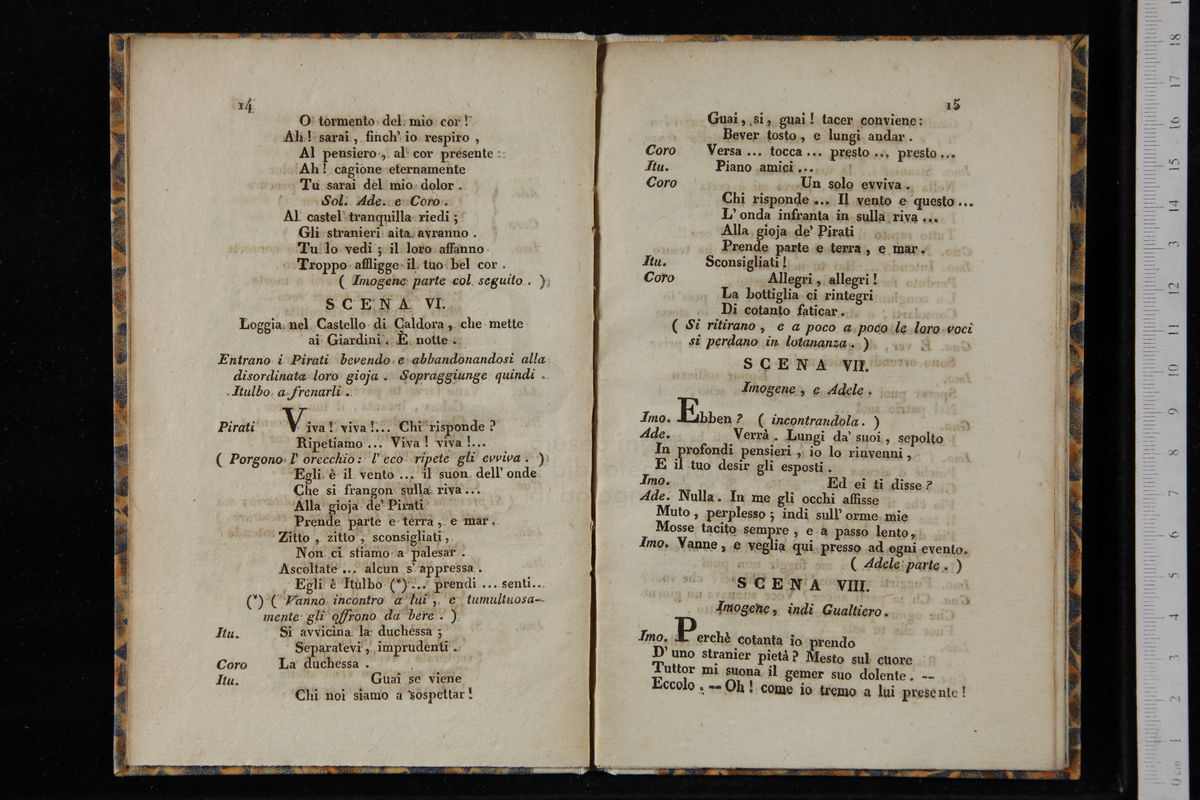 14
O tormento del mio cor!
Ah! sarai, finch' io respiro,
Al pensiero, al cor presente:
Ah! cagione eternamente
Tu sarai del mio dolor.
Sol. Ade. e Coro.
Al castel tranquilla riedi;
Gli stranieri aita avranno.
Tu lo vedi; il loro affanno
Troppo affligge il tuo bel cor.
( Imogene parte col seguito. )
SCENA VI.
Loggia nel Castello di Caldora, che mette
ai Giardini. È notte.
Entrano i Pirati bevendo e abbandonandosi alla
disordinata loro gioja. Sopraggiunge quindi
Itulbo a frenarli.
Pirati Viva! viva!... Chi risponde?
Ripetiamo... Viva! viva!...
( Porgono l' orecchio: l' eco ripete gli evviva. )
Egli è il vento... il suon dell' onde
Che si frangon sulla riva...
Alla gioja de' Pirati
Prende parte e terra, e mar.
Zitto, zitto, sconsigliati,
Non ci stiamo a palesar.
Ascoltate... alcun s' appressa.
Egli è Itulbo (*)... prendi... senti..
(*) ( Vanno incontro a lui, e tumultuosa-
mente gli offrono da bere. )
Itu. Si avvicina la duchessa;
Separatevi, imprudenti.
Coro La duchessa.
Itu. Guai se viene
Chi noi siamo a sospettar!
15
Guai, si, guai! tacer conviene:
Bever tosto, e lungi andar.
Coro Versa... tocca... presto... presto...
Itu. Piano amici...
Coro Un solo evviva.
Chi risponde... Il vento e questo...
L' onda infranta in sulla riva...
Alla gioja de' Pirati
Prende parte e terra, e mar.
Itu. Sconsigliati!
Coro Allegri, allegri!
La bottiglia ci rintegri
Di cotanto faticar.
( Si ritirano, e a poco a poco le loro voci
si perdano in lotananza. )
SCENA VII.
Imogene, e Adele.
Imo. Ebben? ( incontrandola. )
Ade. Verrà. Lungi da' suoi, sepolto
In profondi pensieri, io lo rinvenni,
E il tuo desir gli esposti.
Imo. Ed ei ti disse?
Ade. Nulla. In me gli occhi affisse
Muto, perplesso; indi sull' orme mie
Mosse tacito sempre, e a passo lento,
Imo. Vanne, e veglia qui presso ad ogni evento.
( Adele parte. )
SCENA VIII.
Imogene, indi Gualtiero.
Imo. Perchè cotanta io prendo
D' uno stranier pietà? Mesto sul cuore
Tuttor mi suona il gemer suo dolente. —
Eccolo. — Oh! come io tremo a lui presente!